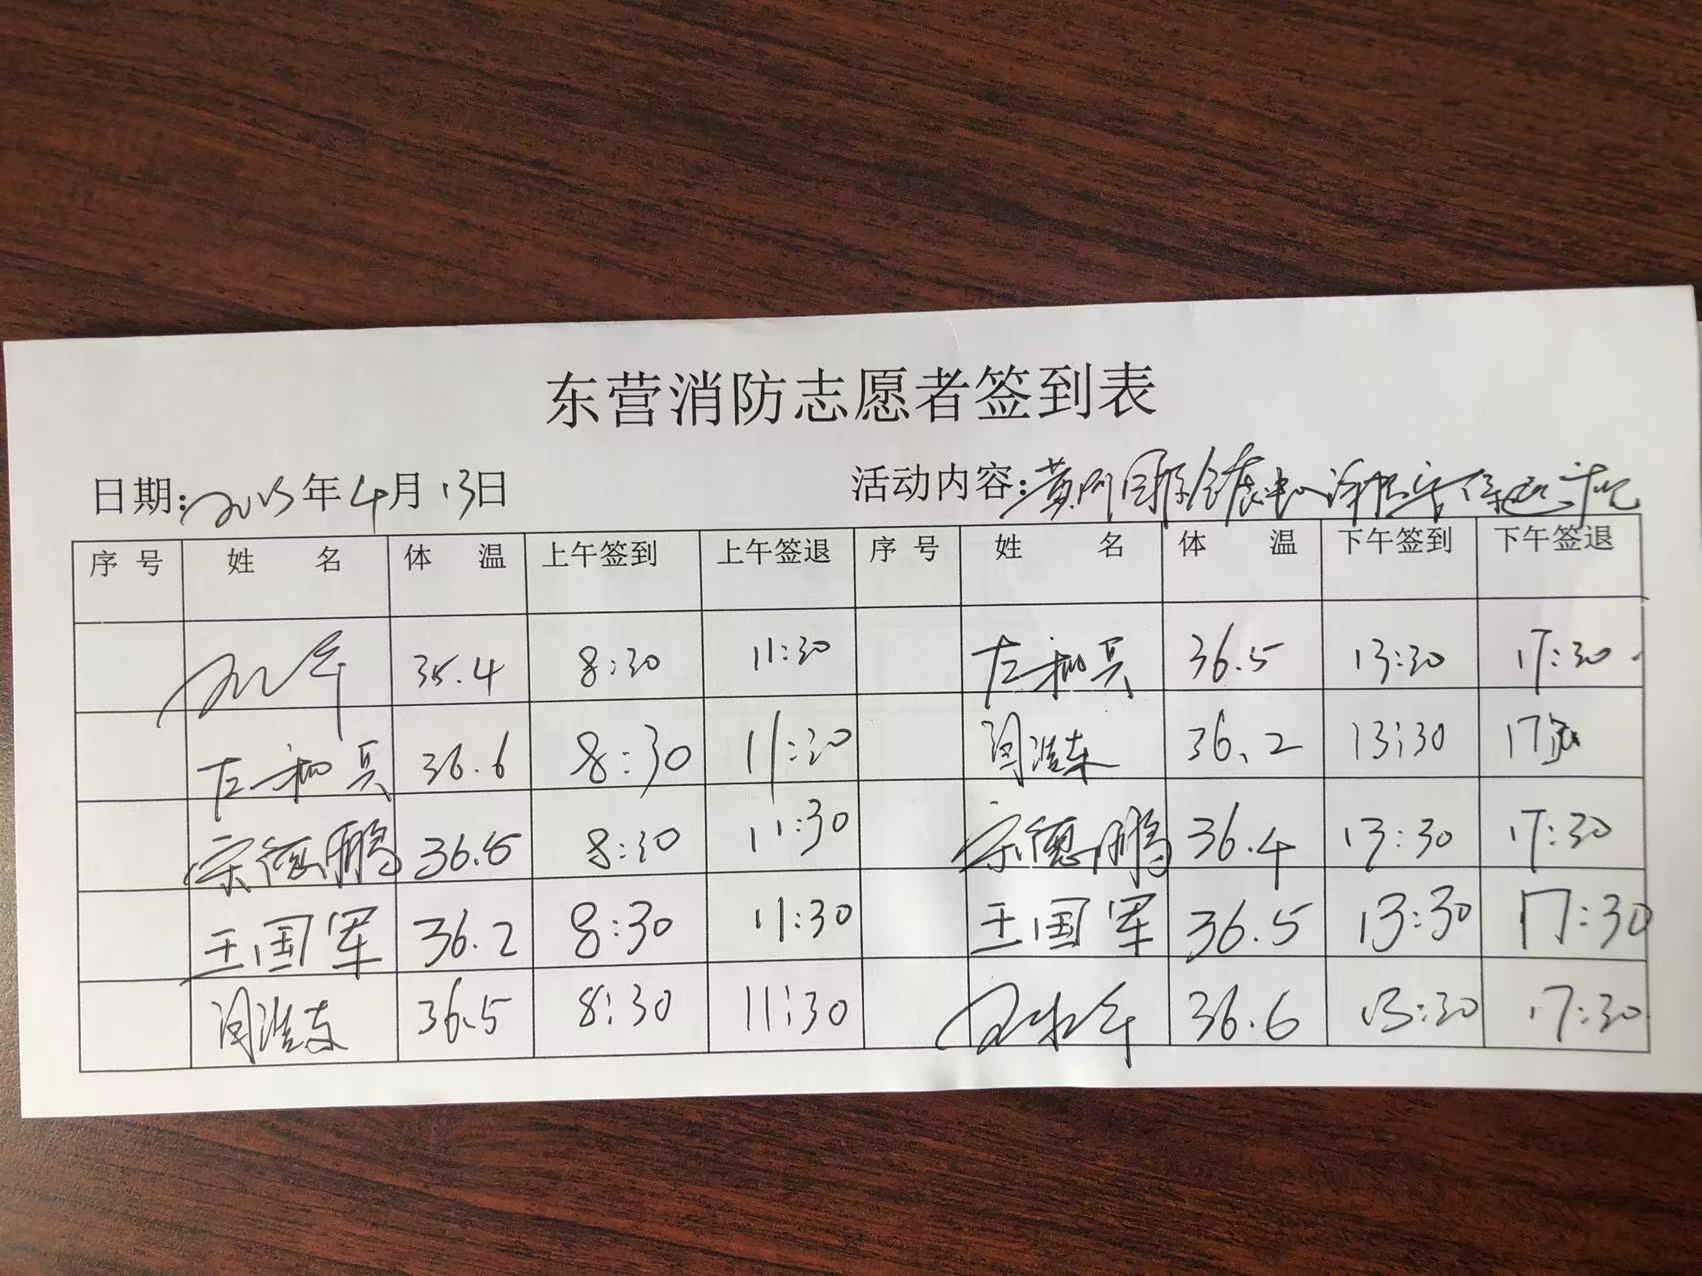 东营消防志愿者签到表
日期: 年4月13日 活动内容:黄河国际会展中心
序号 姓名 体温 上午签到 上午签退 序号 姓名 体温 下午签到 下午签退
35.4 8:30 11:30 左和兵 36.5 13:30 17:30
左和兵 36.6 8:30 11:30 闫浩东 36.2 13:30 17:30
宋德鹏 36.5 8:30 11:30 宋德鹏 36.4 13:30 17:30
王国军 36.2 8:30 11:30 王国军 36.5 13:30 17:30
闫浩东 36.5 8:30 11:30 36.6 13:30 17:30